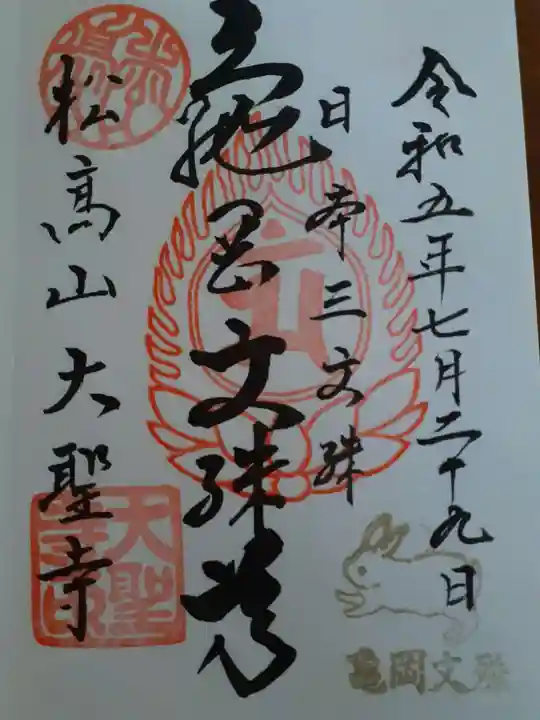 令和五年七月二十九日
日本三文殊
亀岡文殊尊
松高山大聖寺
大聖寺印
亀岡文殊